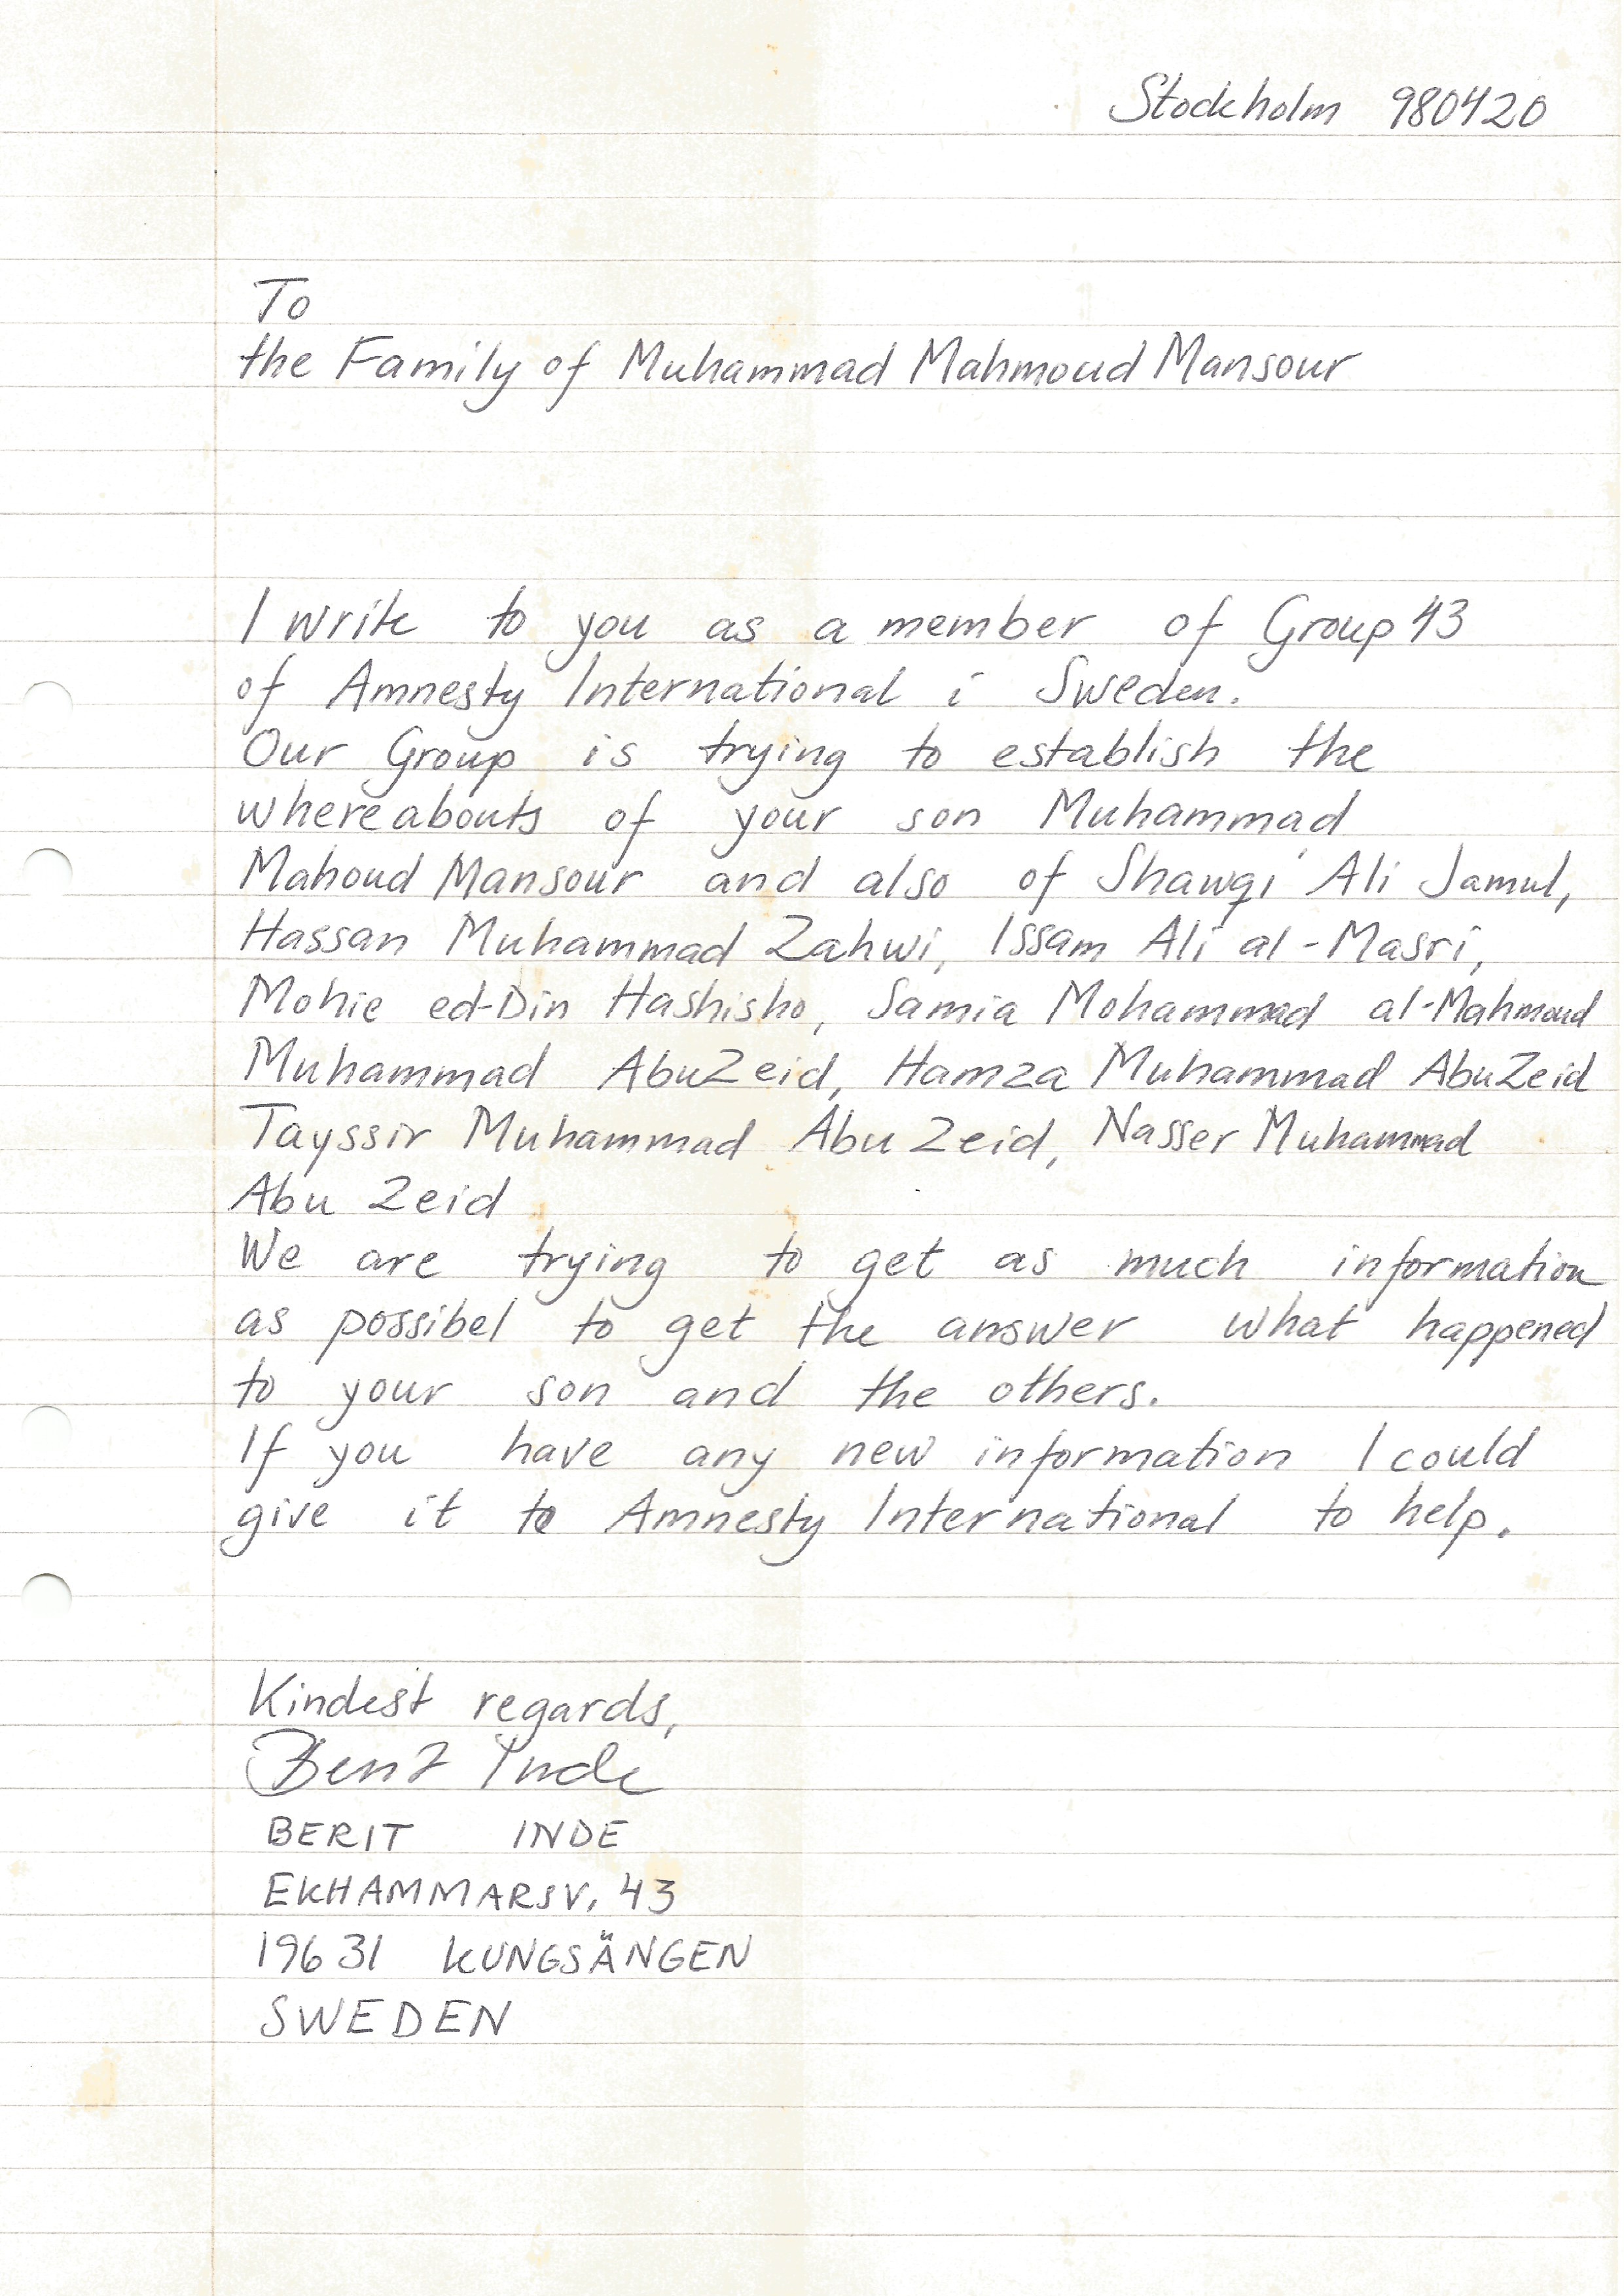 Stockholm 980420
To
the Family of Muhammad Mahmoud Mansour
I write to you as a member of Group 43
of Amnesty International i Sweden.
Our Group is trying to establish the
whereabouts of your son Muhammad
Mahoud Mansour and also of Shawqi Ali Jamul,
Hassan Muhammad Zahwi, Issam Ali al-Masri,
Mohie ed-Din Hashisho, Samia Mohammad al-Mahmoud
Muhammad AbuZeid, Hamza Muhammad AbuZeid
Tayssir Muhammad Abu Zeid, Nasser Muhammad
Abu Zeid
We are trying to get as much information
as possibel to get the answer what happened
to your son and the others.
If you have any new information I could
give it to Amnesty International to help.
Kindest regards,
Berit Inde
BERIT INDE
EKHAMMARSV. 43
196 31 KUNGSÄNGEN
SWEDEN